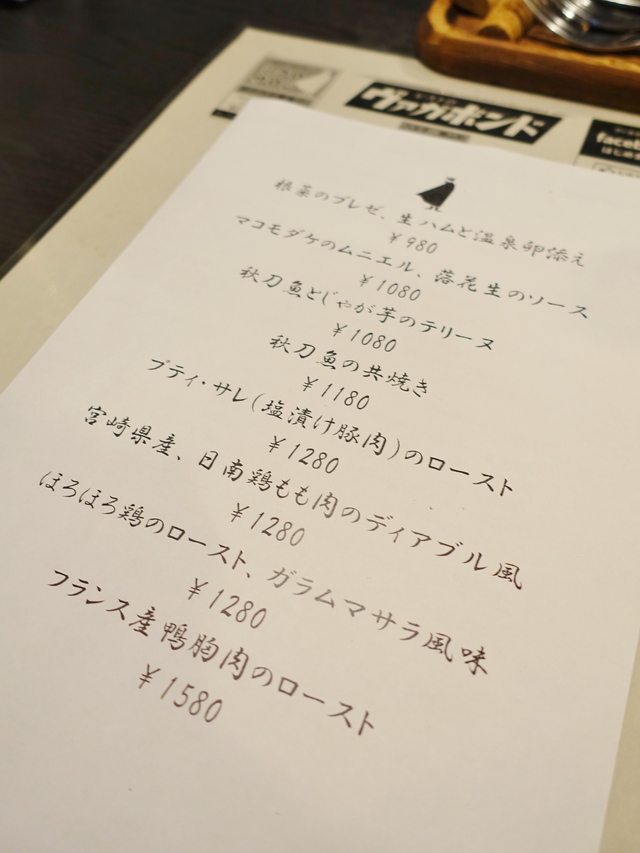 ヴァガボンド
faceb
はじめ
根菜のブレゼ、生ハムと温泉卵添え
￥980
マコモダケのムニエル、落花生のソース
￥1080
秋刀魚とじゃが芋のテリーヌ
￥1080
秋刀魚の共焼き
￥1180
プティ・サレ(塩漬け豚肉)のロースト
￥1280
宮崎県産、日南鶏もも肉のディアブル風
￥1280
ほろほろ鶏のロースト、ガラムマサラ風味
￥1280
フランス産鴨胸肉のロースト
￥1580